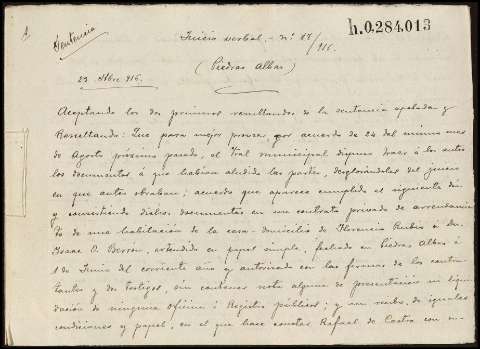 Sentencia
h.0.284.013
Juicio verbal.- nº 17/916.
(Piedras Albas)
23 Sbre 916.
Aceptando los dos primeros resultandos de la sentencia apelada y
Resultando: Que para mejor proveer, por acuerdo de 24 del mismo mes
de Agosto próximo pasado, el Tral municipal dispuso traer á los autos
los documentos á que habían aludido las partes, desglosándolos del juicio
en que antes obraban; acuerdo que aparece cumplido el siguiente día
y consistiendo dichos documentos en un contrato privado de arrendamien
to de una habitación de la casa-domicilio de Florencia Rubio á Dn.
Isaac P. Berrón, extendido en papel simple, fechado en Piedras Albas á
1 de Junio del corriente año y autorizado con las firmas de los contra
tantes y dos testigos, sin contener nota alguna de presentación ni liqui
dación de ninguna oficina ó Registro públicos; y un recibo, de iguales
condiciones y papel, en el que hace constar Rafael de Castro con